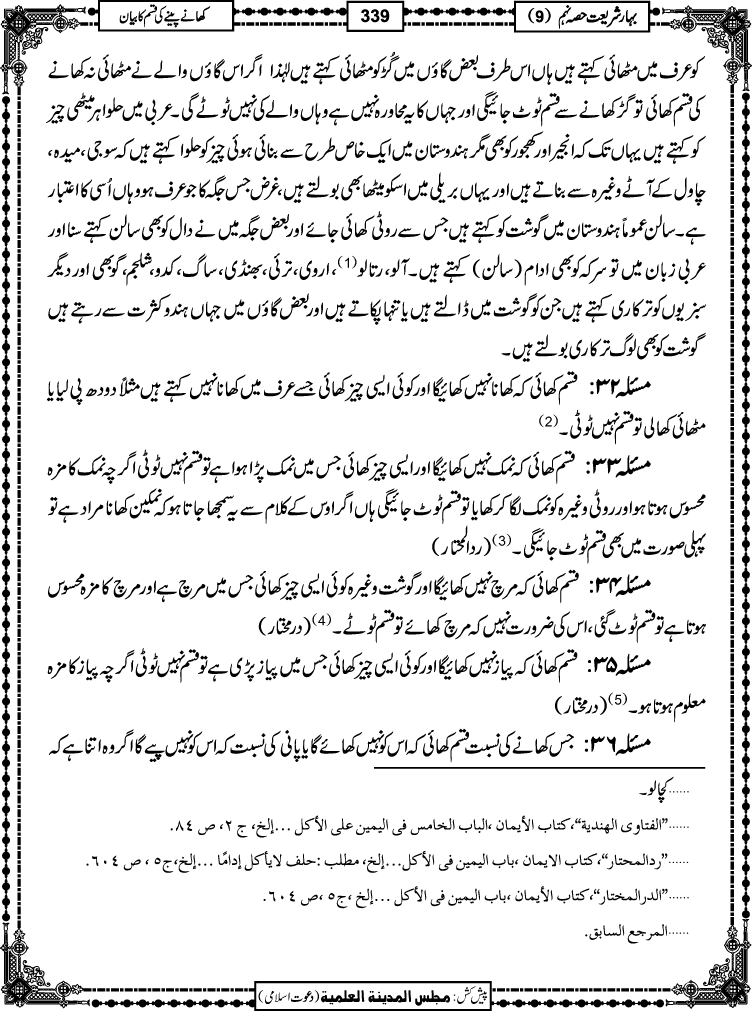 بہار شریعت حصہ نہم (9)
339
کھانے پینے کی قسم کا بیان
کو عرف میں مٹھائی کہتے ہیں ہاں اس طرف بعض گاؤں میں گُڑ کو مٹھائی کہتے ہیں لہٰذا اگر اس گاؤں والے نے مٹھائی نہ کھانے
کی قسم کھائی تو گڑ کھانے سے قسم ٹوٹ جائیگی اور جہاں کا یہ محاورہ نہیں ہے وہاں والے کی نہیں ٹوٹے گی۔ عربی میں حلوا ہر میٹھی چیز
کو کہتے ہیں یہاں تک کہ انجیر اور کھجور کو بھی مگر ہندوستان میں ایک خاص طرح سے بنائی ہوئی چیز کو حلوا کہتے ہیں کہ سوجی، میدہ،
چاول کے آٹے وغیرہ سے بناتے ہیں اور یہاں بریلی میں اسکو میٹھا بھی بولتے ہیں، غرض جس جگہ کا جو عرف ہو وہاں اُسی کا اعتبار
ہے۔ سالن عموماً ہندوستان میں گوشت کو کہتے ہیں جس سے روٹی کھائی جائے اور بعض جگہ میں نے دال کو بھی سالن کہتے سنا اور
عربی زبان میں تو سرکہ کو بھی ادام (سالن) کہتے ہیں۔ آلو، رتالو(1)، اروی، ترئی، بھنڈی، ساگ، کدو، شلجم، گوبھی اور دیگر
سبزیوں کو ترکاری کہتے ہیں جن کو گوشت میں ڈالتے ہیں یا تنہا پکاتے ہیں اور بعض گاؤں میں جہاں ہندو کثرت سے رہتے ہیں
گوشت کو بھی لوگ ترکاری بولتے ہیں۔
مسئلہ ۳۲: قسم کھائی کہ کھانا نہیں کھائیگا اور کوئی ایسی چیز کھائی جسے عرف میں کھانا نہیں کہتے ہیں مثلاً دودھ پی لیا یا
مٹھائی کھالی تو قسم نہیں ٹوٹی۔(2)
مسئلہ ۳۳: قسم کھائی کہ نمک نہیں کھائیگا اور ایسی چیز کھائی جس میں نمک پڑا ہوا ہے تو قسم نہیں ٹوٹی اگرچہ نمک کا مزہ
محسوس ہوتا ہو اور روٹی وغیرہ کو نمک لگا کر کھایا تو قسم ٹوٹ جائیگی ہاں اگر اوس کے کلام سے یہ سمجھا جاتا ہو کہ نمکین کھانا مراد ہے تو
پہلی صورت میں بھی قسم ٹوٹ جائیگی۔(3) (ردالمحتار)
مسئلہ ۳۴: قسم کھائی کہ مرچ نہیں کھائیگا اور گوشت وغیرہ کوئی ایسی چیز کھائی جس میں مرچ ہے اور مرچ کا مزہ محسوس
ہوتا ہے تو قسم ٹوٹ گئی، اس کی ضرورت نہیں کہ مرچ کھائے تو قسم ٹوٹے۔(4) (درمختار)
مسئلہ ۳۵: قسم کھائی کہ پیاز نہیں کھائیگا اور کوئی ایسی چیز کھائی جس میں پیاز پڑی ہے تو قسم نہیں ٹوٹی اگرچہ پیاز کا مزہ
معلوم ہوتا ہو۔(5) (درمختار)
مسئلہ ۳۶: جس کھانے کی نسبت قسم کھائی کہ اس کو نہیں کھائے گا یا پانی کی نسبت کہ اس کو نہیں پیے گا اگر وہ اتنا ہے کہ
......کچالو۔
......”الفتاوی الھندیة“، کتاب الأیمان ،الباب الخامس فی الیمین علی الأکل ...إلخ، ج ۲، ص ۸٤.
......”ردالمحتار“، کتاب الایمان ،باب الیمین فی الأکل...إلخ، مطلب :حلف لایأکل إدامًا ...إلخ،ج٥ ، ص ٦٠٤.
......”الدرالمختار“، کتاب الأیمان ،باب الیمین فی الأکل ...إلخ ،ج٥ ،ص ٦٠٤.
......المرجع السابق.
پیش کش: مجلس المدینة العلمیة (دعوت اسلامی)